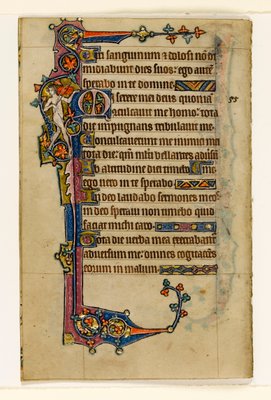 Viri sanguinum & dolosi nō di
midiabunt dies suos: ego autē
sperabo in te domine
Miserere mei deus quoniā
conculcauit me homo: tota
die impugnans tribulauit me
Conculcauerunt me inimici mei
tota die: qm̄ multi bellantes aduersū
Ab altitudine diei timebo:
ego uero in te sperabo
In deo laudabo sermones meos
in deo speraui non timebo quid
faciat michi caro
Tota die uerba mea execrabantur
aduersum me: omnes cogitacōes
eorum in malum
55